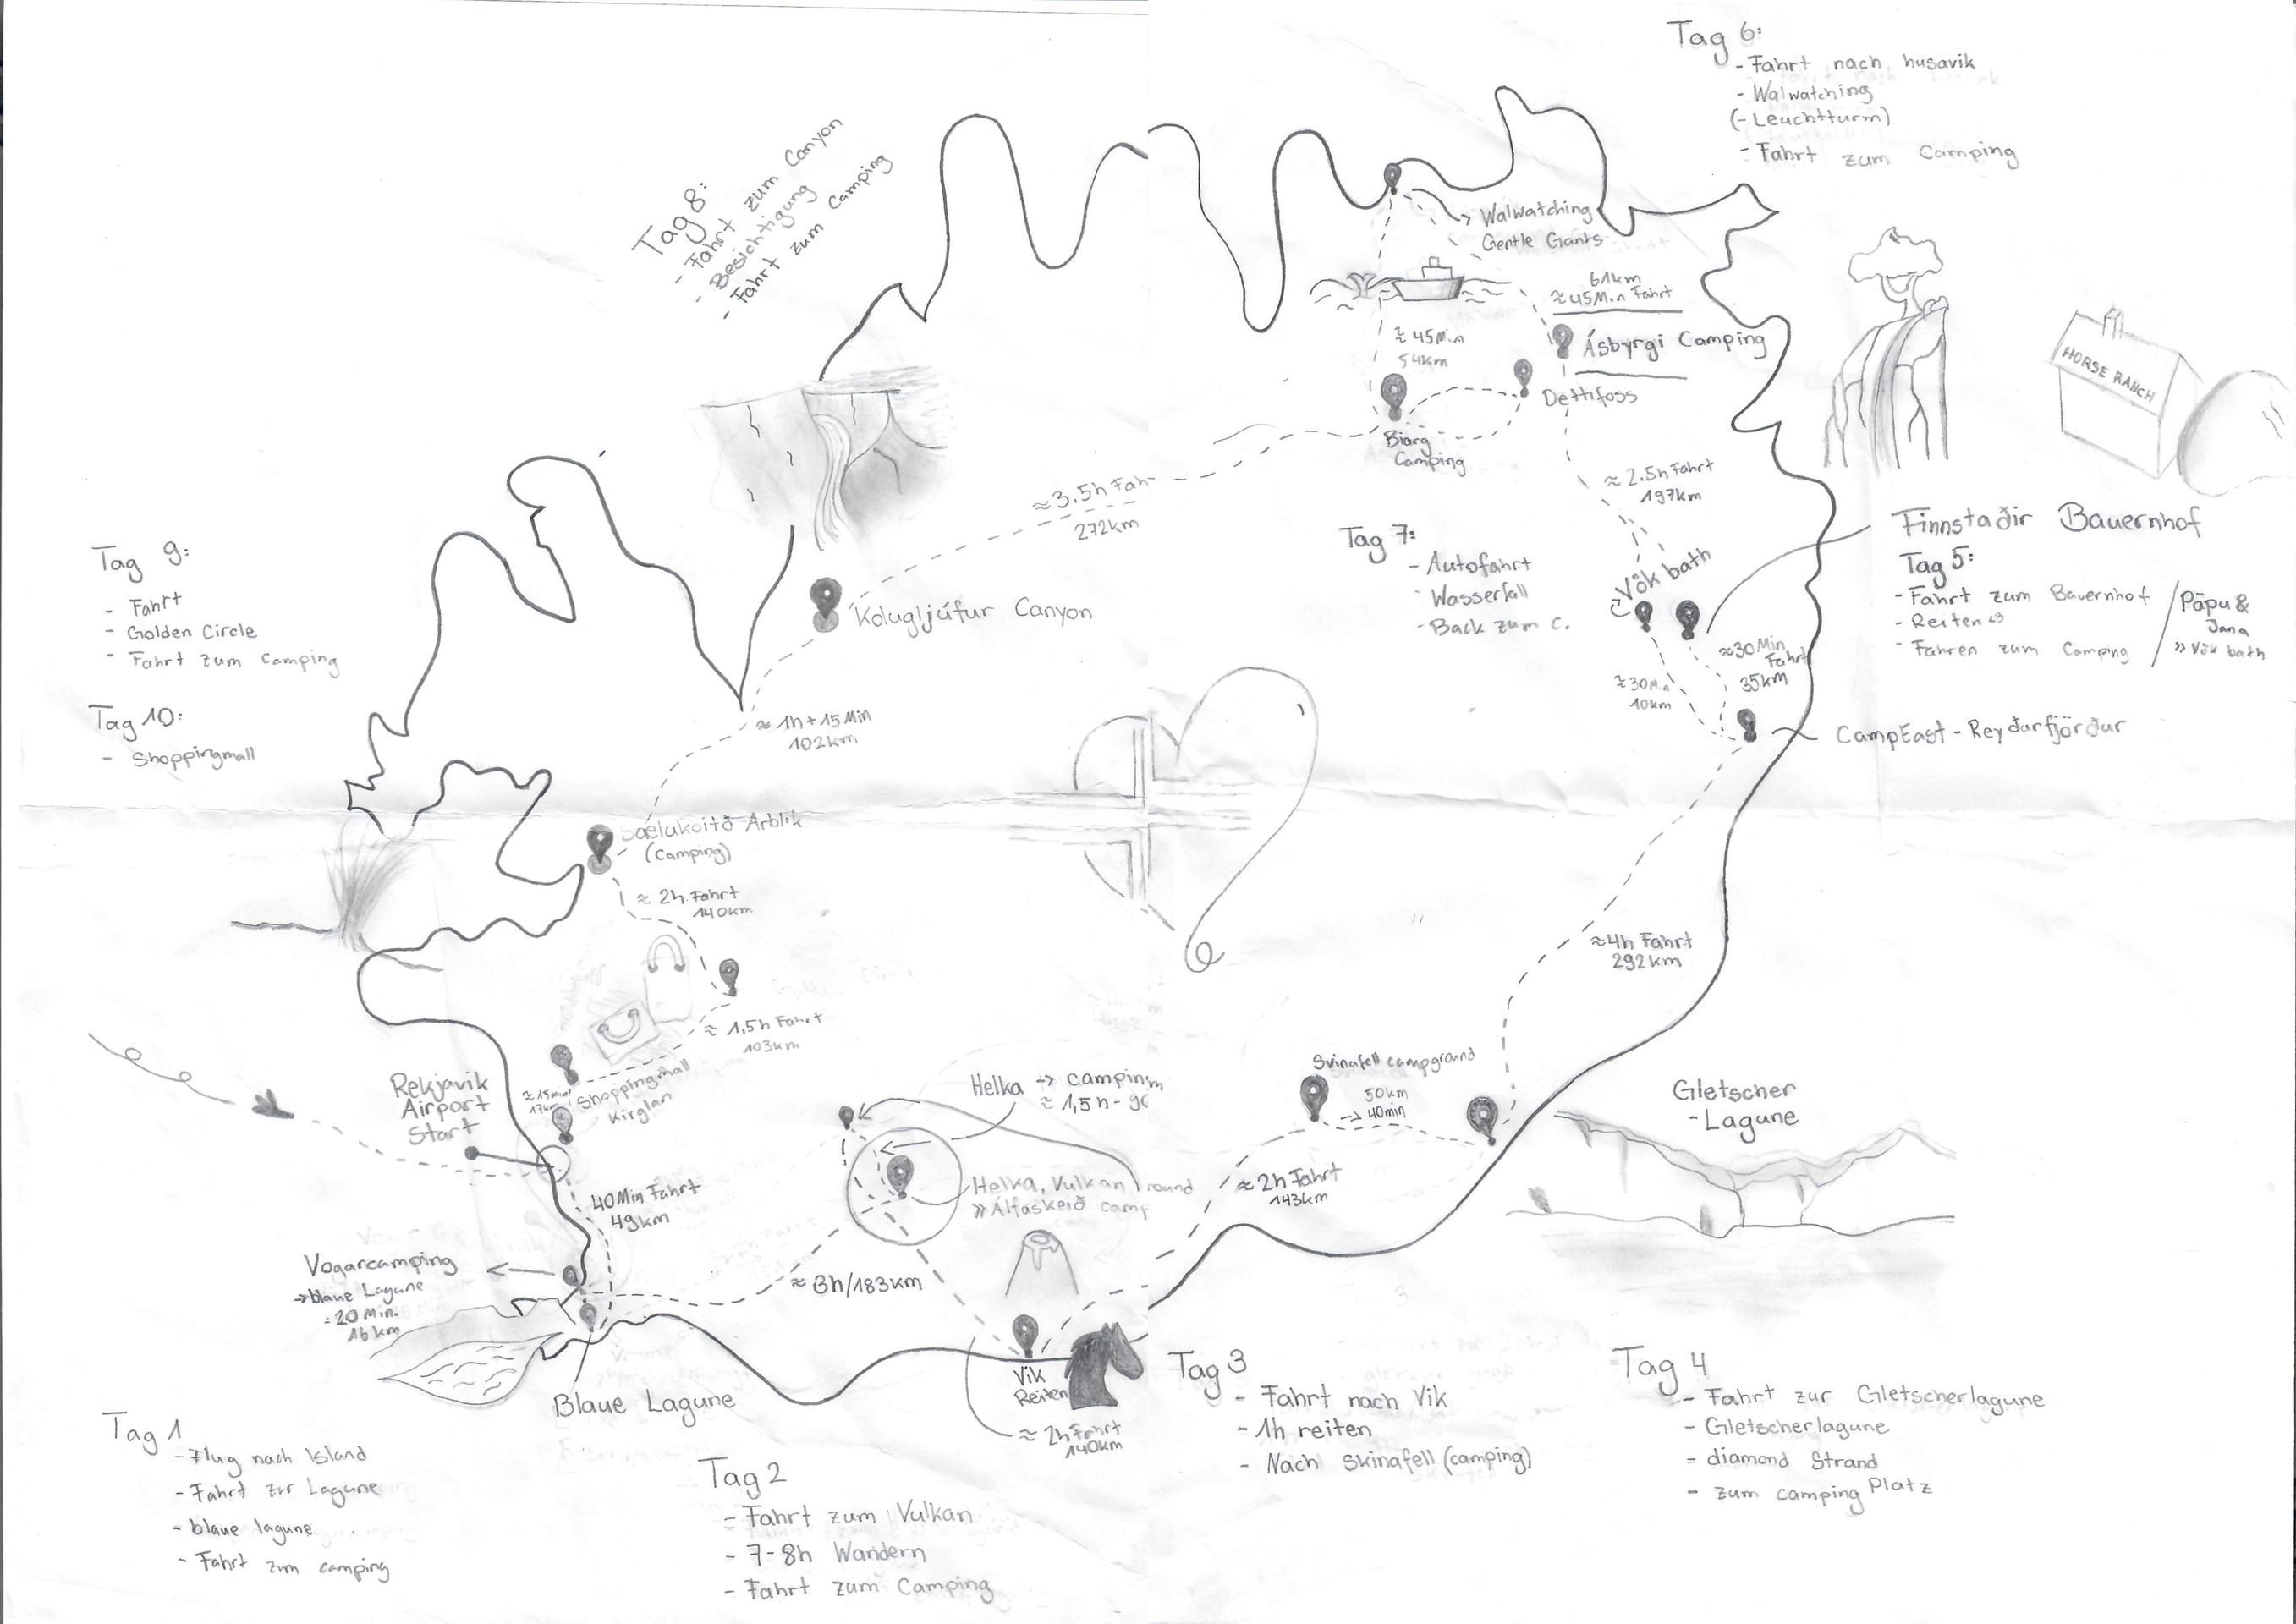 Tag 6:
- Fahrt nach husavik
- Walwatching
(- Leuchtturm)
- Fahrt zum Camping
Tag 8:
- Fahrt zum Canyon
- Besichtigung
- Fahrt zum Camping
Walwatching
Gentle Giants
61km
≈45Min Fahrt
Ásbyrgi Camping
≈45Min
54km
Dettifoss
Biarg
Camping
HORSE RANCH
≈3.5h Fah
272km
≈2.5h Fahrt
197km
Tag 7:
- Autofahrt
- Wasserfall
- Back zum C.
Vök bath
Finnstaðir Bauernhof
Tag 5:
- Fahrt zum Bauernhof
- Reiten <3
- Fahren zum Camping
Päpu &
Jana
» Vök bath
≈30Min
Fahrt
35km
≈30Min
10km
CampEast - Reyðarfjörður
Tag 9:
- Fahrt
- Golden Circle
- Fahrt zum Camping
Tag 10:
- Shoppingmall
Kolugljúfur Canyon
≈1h + 15Min
102km
Saelukoitð Árblik
(Camping)
≈ 2h Fahrt
140km
≈ 1,5h Fahrt
103km
≈4h Fahrt
292km
≈15min
17km
Shoppingmall
Kirglan
Rekjavik
Airport
Start
40Min Fahrt
49km
Vogarcamping
→ blaue Lagune
= 20 Min.
16km
Blaue Lagune
≈ 3h/183km
Helka → camping
≈ 1,5h -
Helka, Vulkan
» Álfaskeið camp
round
Vik
Reiten
≈ 2h Fahrt
140km
≈2h Fahrt
143km
Svinafell campground
50km
→ 40min
Gletscher
-Lagune
Tag 1
- Flug nach Island
- Fahrt zur Lagune
- blaue lagune
- Fahrt zum camping
Tag 2
- Fahrt zum Vulkan
- 7-8h Wandern
- Fahrt zum Camping
Tag 3
- Fahrt nach Vik
- 1h reiten
- Nach Skinafell (camping)
Tag 4
- Fahrt zur Gletscherlagune
- Gletscherlagune
- diamond Strand
- zum camping Platz